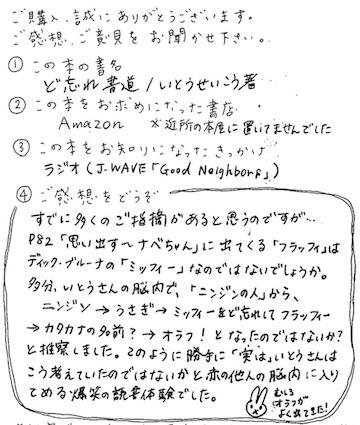 ご購入、誠にありがとうございます。
ご感想、ご意見をお聞かせ下さい。
① この本の書名
ど忘れ書道/いとうせいこう著
② この本をお求めになった書店
Amazon ※近所の本屋に置いてませんでした
③ この本をお知りになったきっかけ
ラジオ(J-WAVE「Good Neighbors」)
④ ご感想をどうぞ
すでに多くのご指摘があると思うのですが…
P82「思い出す〜ナベちゃん」に出てくる「フラッフィ」は
ディック・ブルーナの「ミッフィー」なのではないでしょうか。
多分、いとうさんの脳内で、「ニンジンの人」から、
ニンジン→うさぎ→ミッフィーをど忘れしてフラッフィー
→カタカナの名前?→オラフ!となったのではないか?
と推察しました。このように勝手に「実は」いとうさんは
こう考えていたのではないかと赤の他人の脳内に入り
てめる爆笑の読書体験でした。
むしろ
オラフが
よく出てきた!